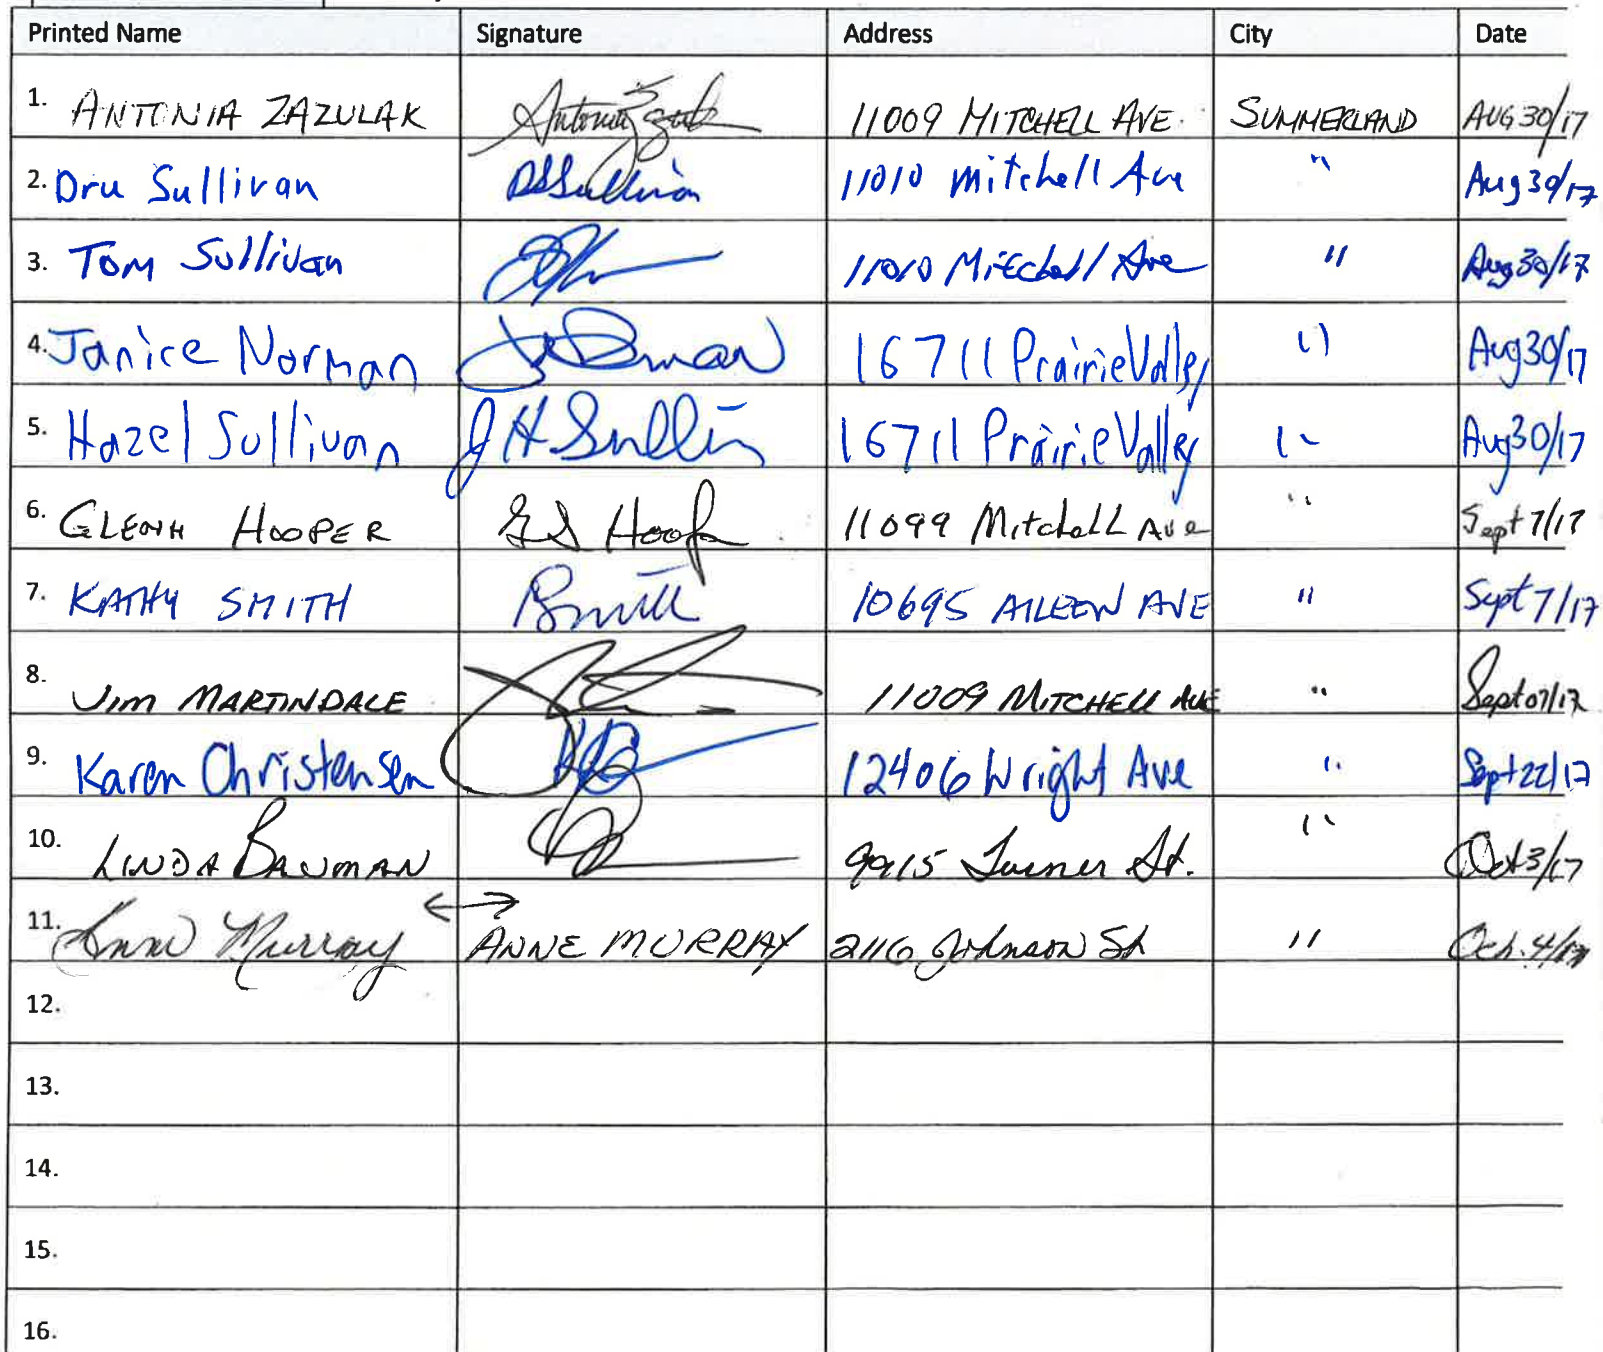 Printed Name Signature Address City Date
1. ANTONIA ZAZULAK 11009 MITCHELL AVE. SUMMERLAND AUG 30/17
2. Dru Sullivan DSSullivan 11010 Mitchell Ave " Aug 30/17
3. Tom Sullivan 11010 Mitchell Ave " Aug 30/17
4. Janice Norman 16711 Prairie Valley " Aug 30/17
5. Hazel Sullivan JH Sullivan 16711 Prairie Valley " Aug 30/17
6. GLENN HOOPER 11099 Mitchell Ave " Sept 7/17
7. KATHY SMITH 10695 AILEEN AVE " Sept 7/17
8. JIM MARTINDALE 11009 MITCHELL AVE " Sept 07/17
9. Karen Christensen 12406 Wright Ave " Sept 22/17
10. LINDA BAUMAN 9915 Turner St. " Oct 3/17
11. Anne Murray ANNE MURRAY 2116 Johnson St " Oct. 4/17
12.
13.
14.
15.
16.